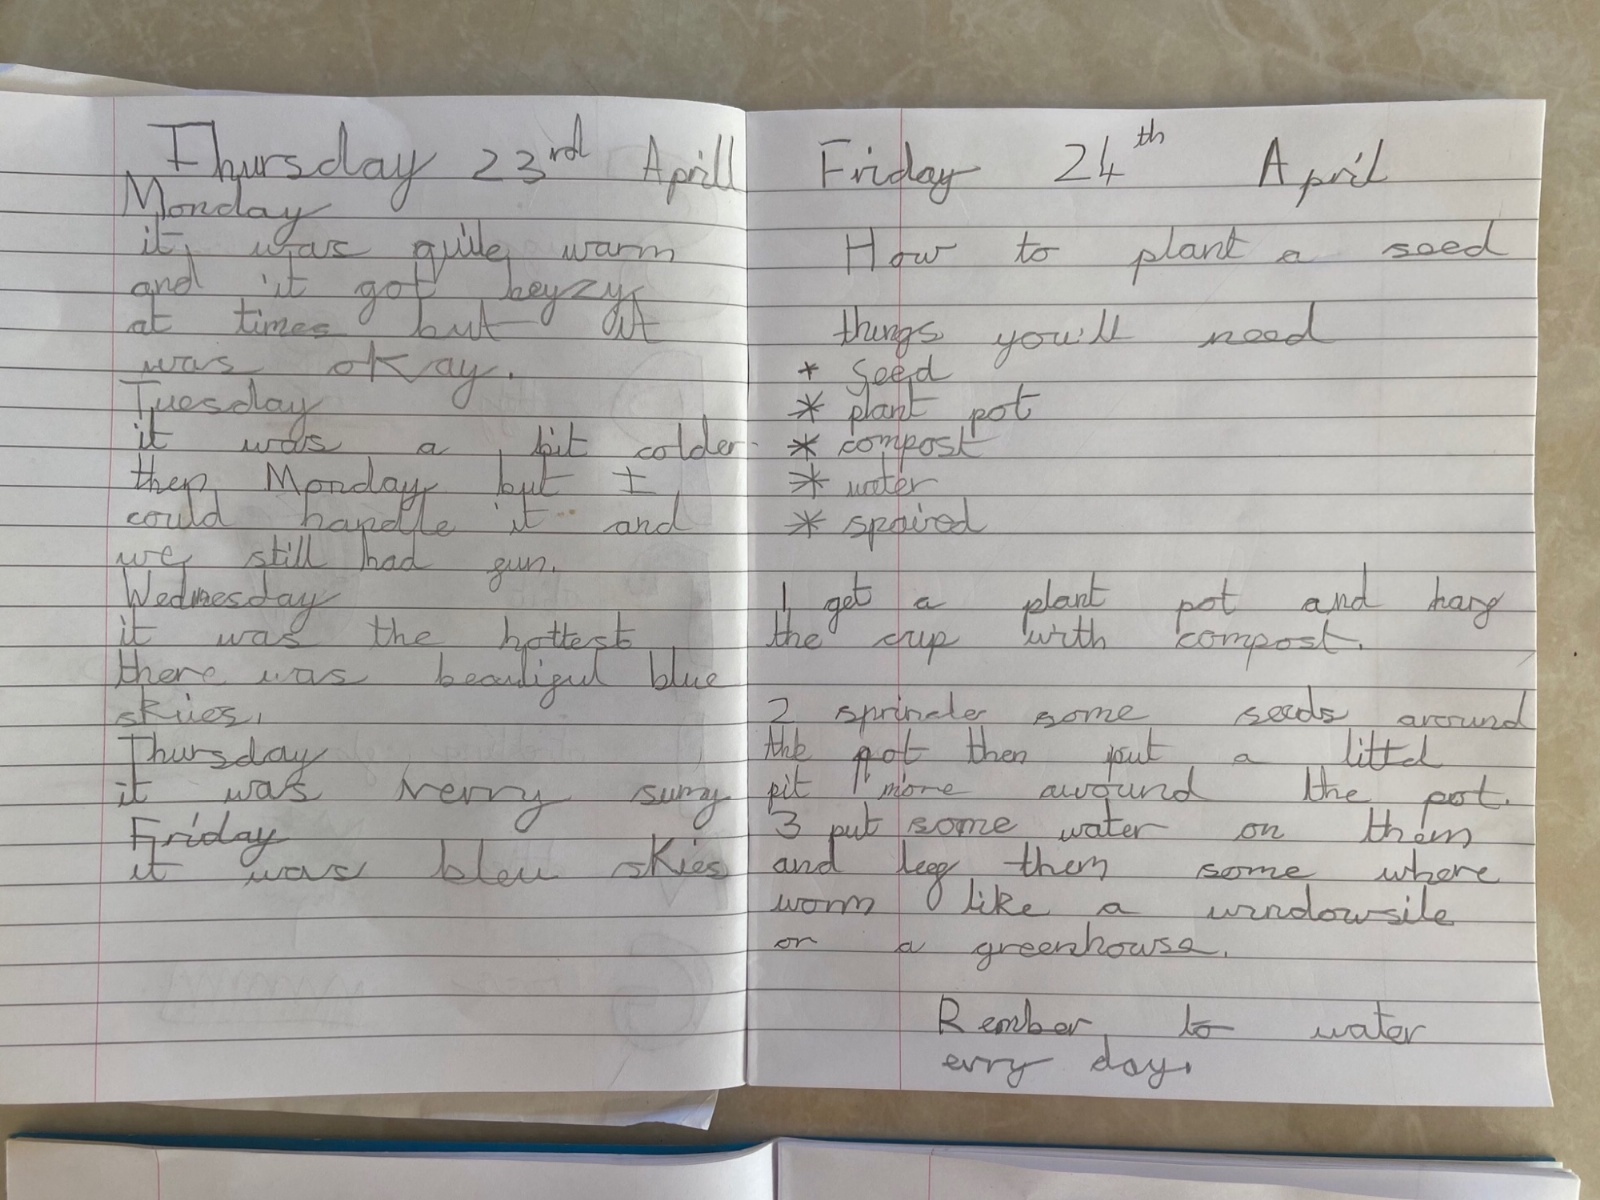 Thursday 23rd Aprill
Monday
it was quite warm
and it got beyzy
at times but it
was okay.
Tuesday
it was a bit colder
then Monday but I
could handle it and
we still had fun.
Wednesday
it was the hottest
there was beautiful blue
skies.
Thursday
it was verry suny
Friday
it was bleu skies
Friday 24th April
How to plant a seed
things you'll need
* Seed
* plant pot
* compost
* water
* spaired
1 get a plant pot and harf
the cup with compost.
2 sprincle some seeds around
the pot then put a littd
pit more around the pot.
3 put some water on them
and leef them some where
worm like a windowsile
or a greenhouse.
Rember to water
evry day.